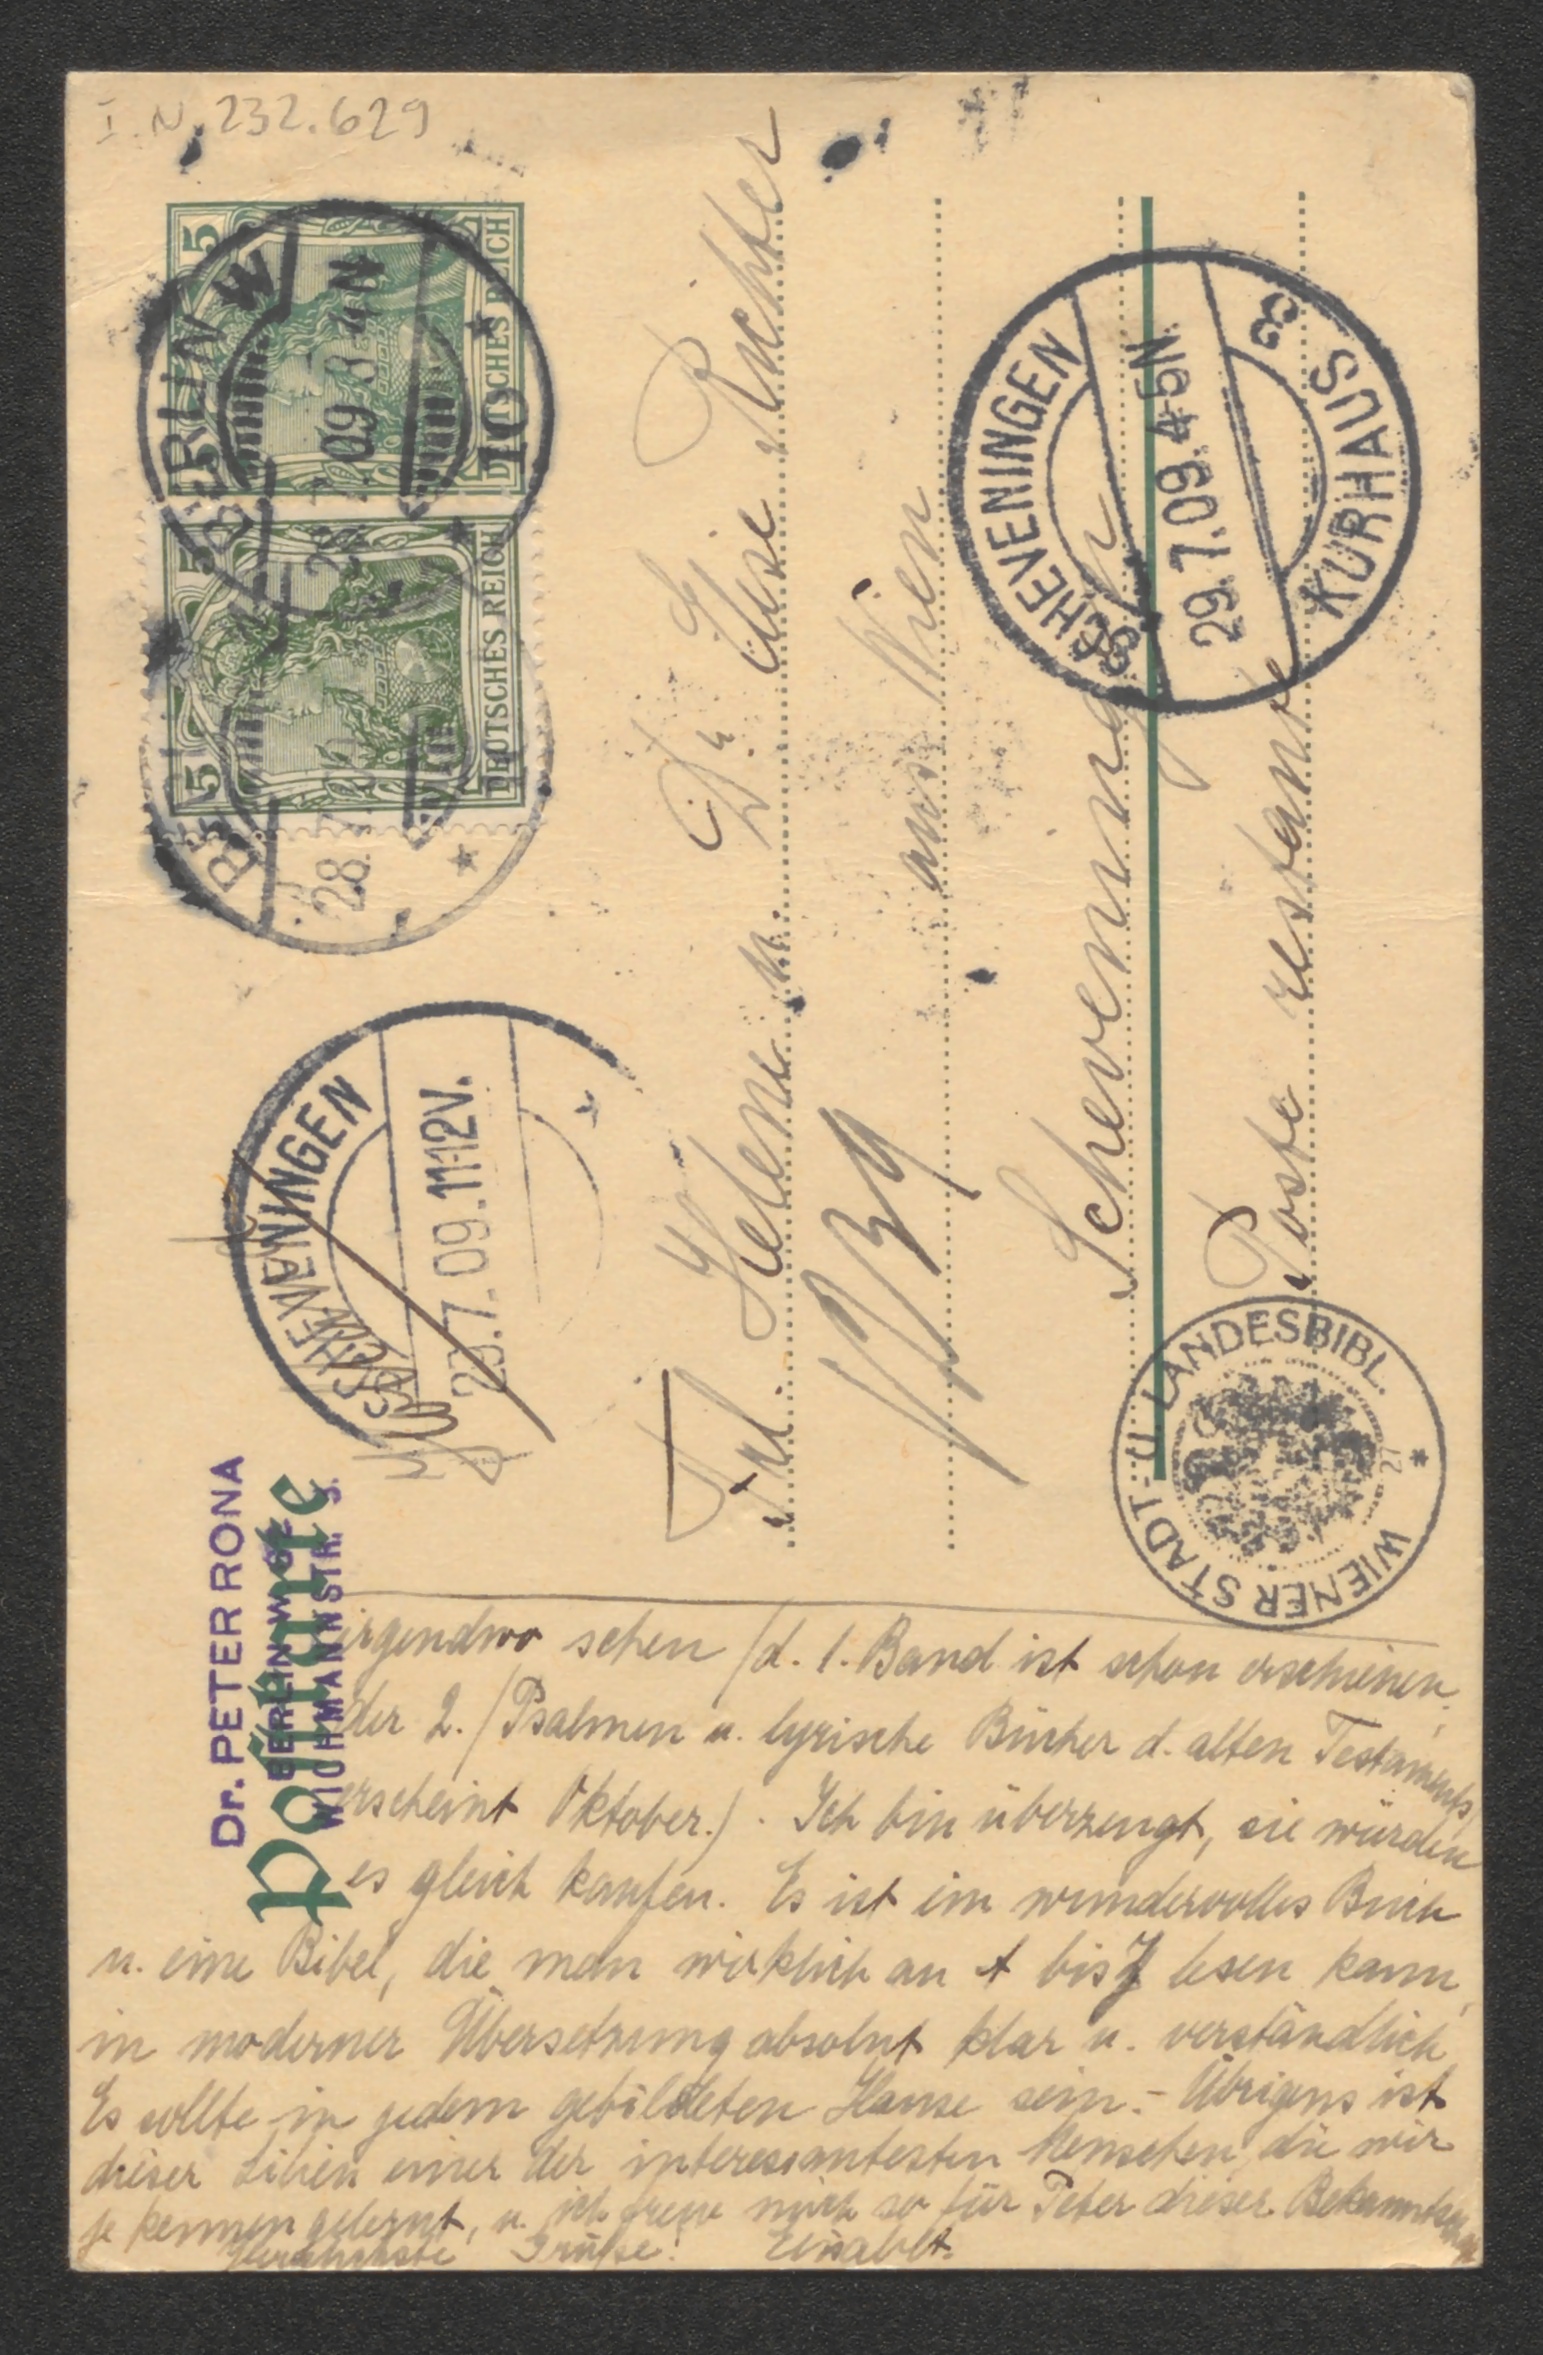 I.N. 232.629
5
DEUTSCHES REICH
5
DEUTSCHES REICH
BERLIN W
28.7.09 3-4N
10
28.7
SCHEVENINGEN
29.7.09 4-5N
KURHAUS
SCHEVENINGEN
29.7.09.11-12V.
Dr. PETER RONA
BERLIN W 62
WICHMANNSTR. 3.
Postkarte
Frl. Helene u. Dr. Elise Richter
aus Wien
Scheveningen
Poste restante
WIENER STADT- U. LANDESBIBL.
irgendwo sehen (d. 1. Band ist schon erschienen,
der 2. (Psalmen u. lyrische Bücher d. alten Testaments)
erscheint Oktober.). Ich bin überzeugt, sie würden
es gleich kaufen. Es ist ein wundervolles Buch
u. eine Bibel, die man wirklich an A bis Z lesen kann,
in moderner Übersetzung absolut klar u. verständlich
Es sollte in jedem gebildeten Hause sein. - Übrigens ist
dieser einer der interessantesten Menschen, die wir
je kennen gelernt, u. ich freue mich so für Peter dieser
Herzlichste Grüße! Elisabeth